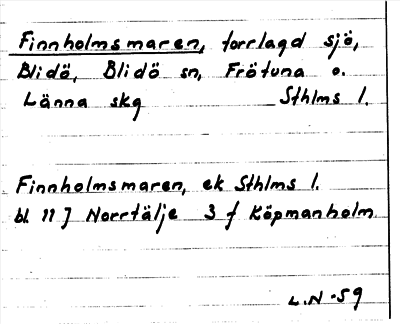 Finnholmsmaren, torrlagd sjö,
Blidö, Blidö sn, Frötuna o.
Länna skg Sthlms l.
Finnholmsmaren, ek Sthlms l.
bl. 11 J Norrtälje 3 f Köpmanholm
L.N -59